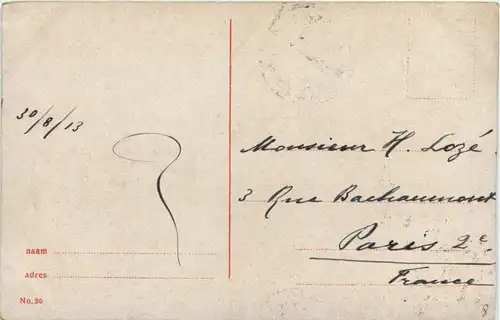 30/8/13
Monsieur H. Lozé.
3 Rue Bachaumont
Paris 2e
France
naam
adres
No. 96
8